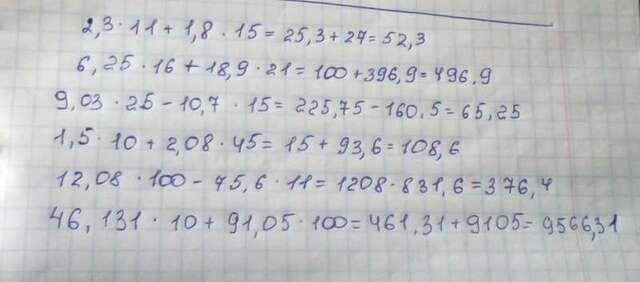 2,3 · 11 + 1,8 · 15 = 25,3 + 27 = 52,3
6,25 · 16 + 18,9 · 21 = 100 + 396,9 = 496,9
9,03 · 25 - 10,7 · 15 = 225,75 - 160,5 = 65,25
1,5 · 10 + 2,08 · 45 = 15 + 93,6 = 108,6
12,08 · 100 - 75,6 · 11 = 1208 · 831,6 = 376,4
46,131 · 10 + 91,05 · 100 = 461,31 + 9105 = 9566,31